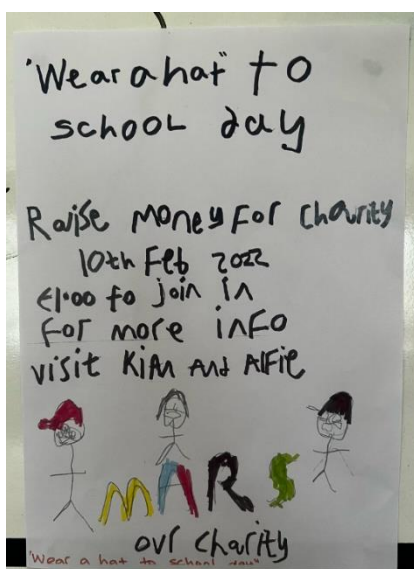 "Wear a hat" to
school day
Raise money for charity
10th Feb 2022
£1.00 to join in
for more info
visit Kian And Alfie
MARS
our charity
"Wear a hat to school day"